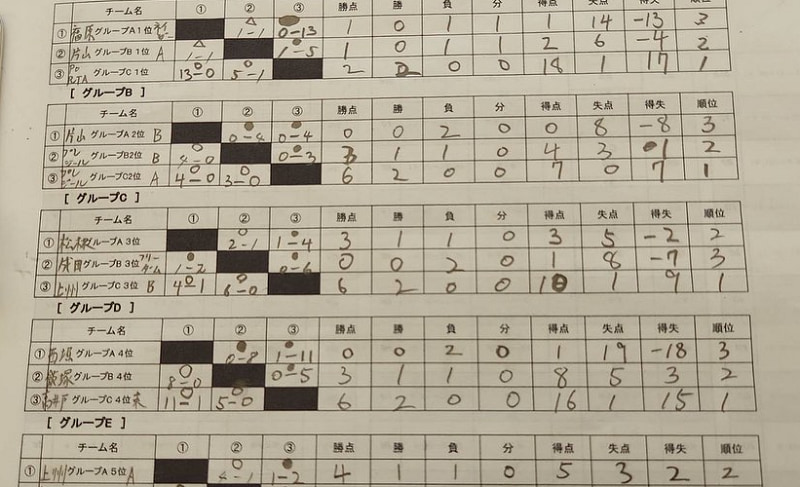 チーム名 ① ② ③ 勝点 勝 負 分 得点 失点 得失 順位
① グループA 1位 1-1 0-13 1 0 1 1 1 14 -13 3
② 片山 グループB 1位 A 1-1 1-5 1 0 1 1 2 6 -4 2
③ グループC 1位 13-0 5-1 2 2 0 0 18 1 17 1
[ グループB ]
チーム名 ① ② ③ 勝点 勝 負 分 得点 失点 得失 順位
① 片山 グループA 2位 B 0-4 0-4 0 0 2 0 0 8 -8 3
② グループB2位 B 4-0 0-3 3 1 1 0 4 3 1 2
③ グループC2位 A 4-0 3-0 6 2 0 0 7 0 7 1
[ グループC ]
チーム名 ① ② ③ 勝点 勝 負 分 得点 失点 得失 順位
① ループA 3位 2-1 1-4 3 1 1 0 3 5 -2 2
② グループB 3位 フリーダム 1-2 0-6 0 0 2 0 1 8 -7 3
③ 上州 グループC 3位 B 4-1 6-0 6 2 0 0 10 1 9 1
[ グループD ]
チーム名 ① ② ③ 勝点 勝 負 分 得点 失点 得失 順位
① グループA 4位 0-8 1-11 0 0 2 0 1 19 -18 3
② グループB 4位 8-0 0-5 3 1 1 0 8 5 3 2
③ グループC 4位 11-1 5-0 6 2 0 0 16 1 15 1
[ グループE ]
チーム名 ① ② ③ 勝点 勝 負 分 得点 失点 得失 順位
① 上州 グループA 5位 A 4-1 1-2 4 1 1 0 5 3 2 2